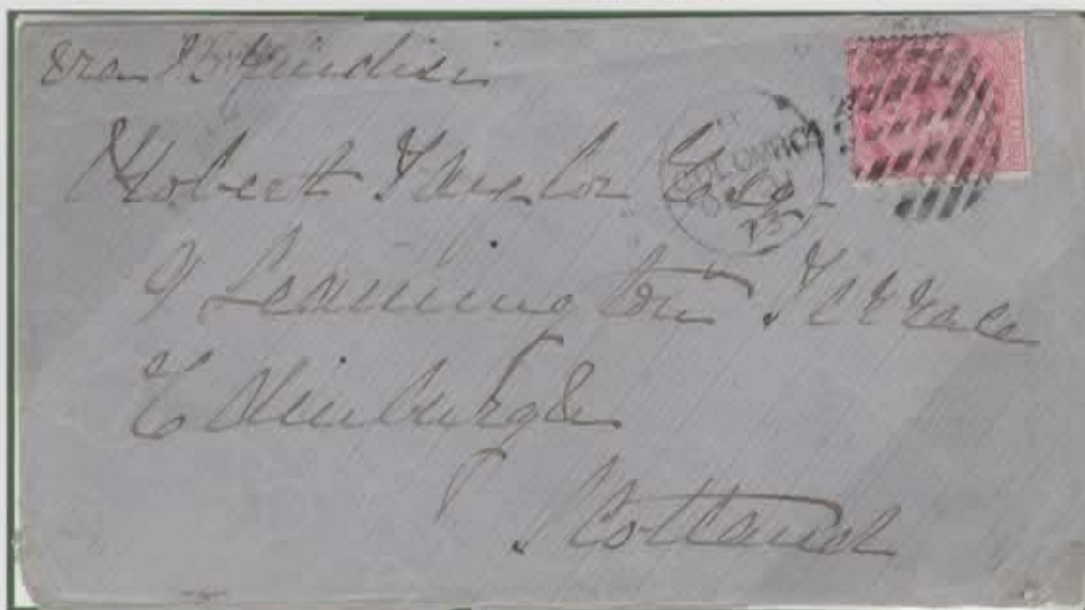 via Brindisi
Robert Taylor Esq.
9 Leamington Terrace
Edinburgh
Scotland